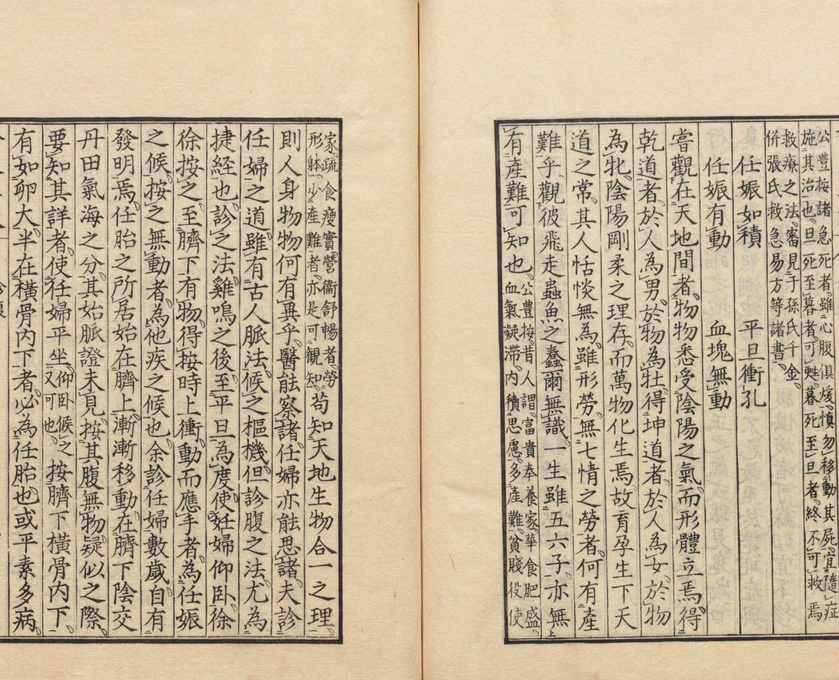 公豊按諸急死者雖心腹俱緩慎勿移動其屍宜隨症
施其治也旦死至暮者可甦暮死至旦者終不可救焉
救療之法審見于孫氏千金
併張氏救急易方等諸書
任娠如積 平旦衝孔
任娠有動 血塊無動
嘗觀在天地間者物物悉受陰陽之氣而形體立焉得
乾道者於人為男於物為牡得坤道者於人為女於物
為牝陰陽剛柔之理存而萬物化生焉故育孕生下天
道之常其人恬惔無為雖形勞無七情之勞者何有產
難乎觀彼飛走蟲魚之蠢爾無識一生雖五六子亦無
有產難可知也
公豊按昔人謂富貴奉養家華食肥盛
血氣凝滯內積思慮多產難貧賤役使
家疏食瘦實營衞舒暢者勞
形躰少產難者亦是可觀知
苟知天地生物合一之理
則人身物物何有異乎醫能察諸任婦亦能思諸夫診
任婦之道雖有古人脈法候之樞機但診腹之法尤為
捷經也診之法雞鳴之後至平旦為度使妊婦仰臥徐
徐按之至臍下有物得按時上衝動而應手者為任娠
之候按之無動者為他疾之候也余診任婦數歲自有
發明焉任胎之所居始在臍上漸漸移動在臍下陰交
丹田氣海之分其始脈證未見按其腹無物疑似之際
要知其詳者使任婦平坐
仰臥候之
又可也
按臍下橫骨內下
有如卵大半在橫骨內下者必為任胎也或平素多病